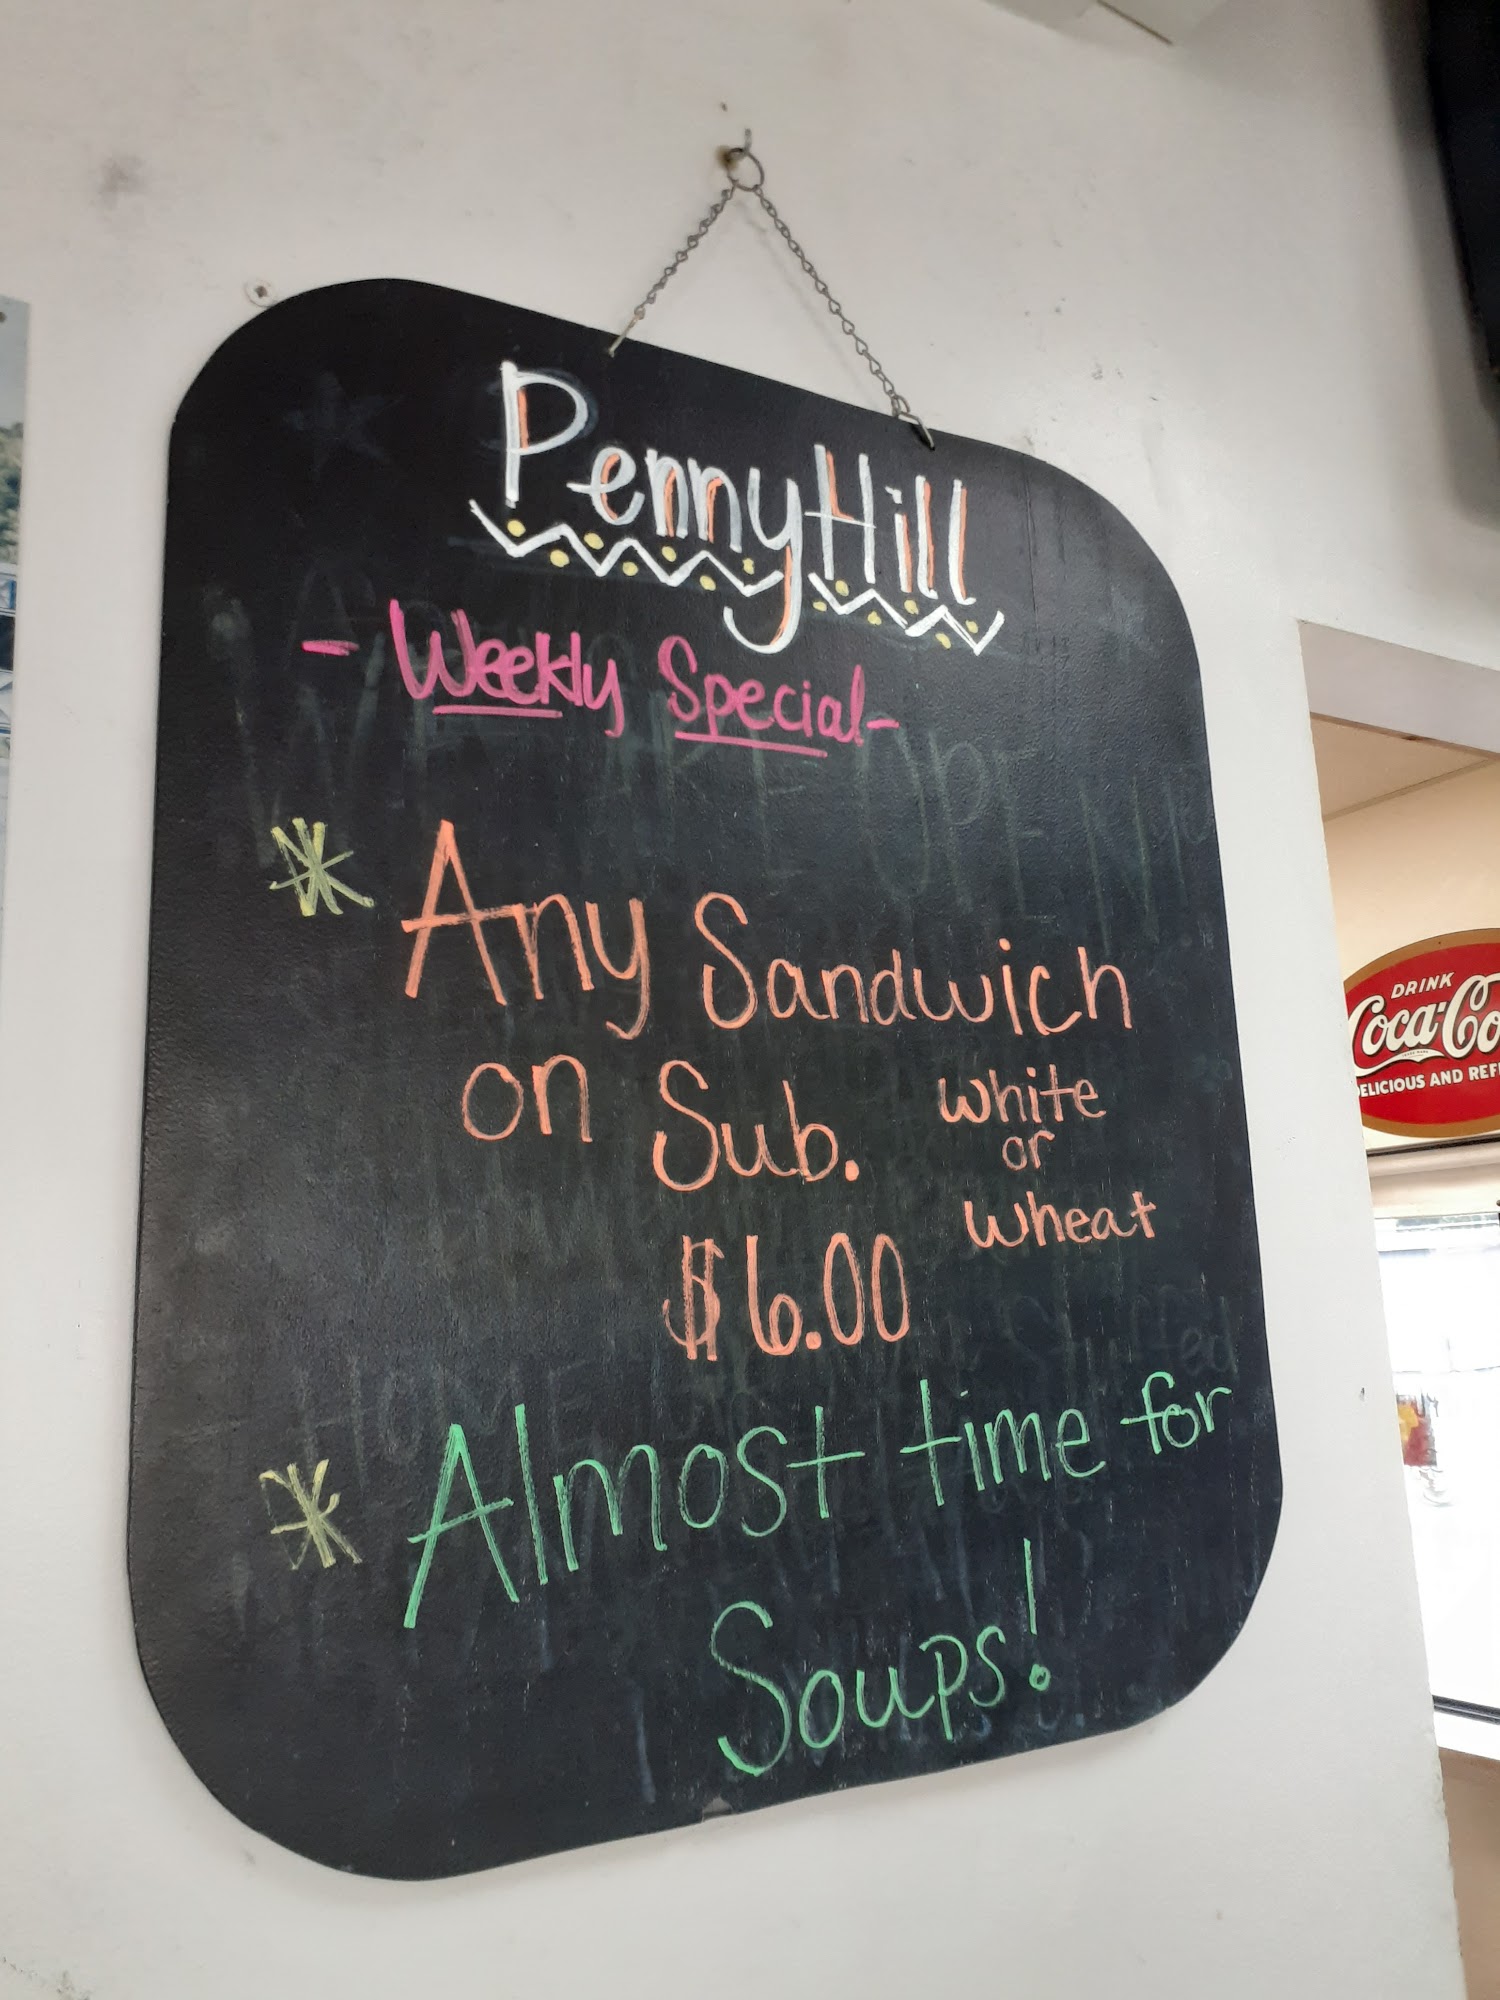 PennyHill
- Weekly Special -
* Any Sandwich
on Sub.
White
or
Wheat
$6.00
* Almost time for
Soups!
DRINK
Coca-Co
ELICIOUS AND REF